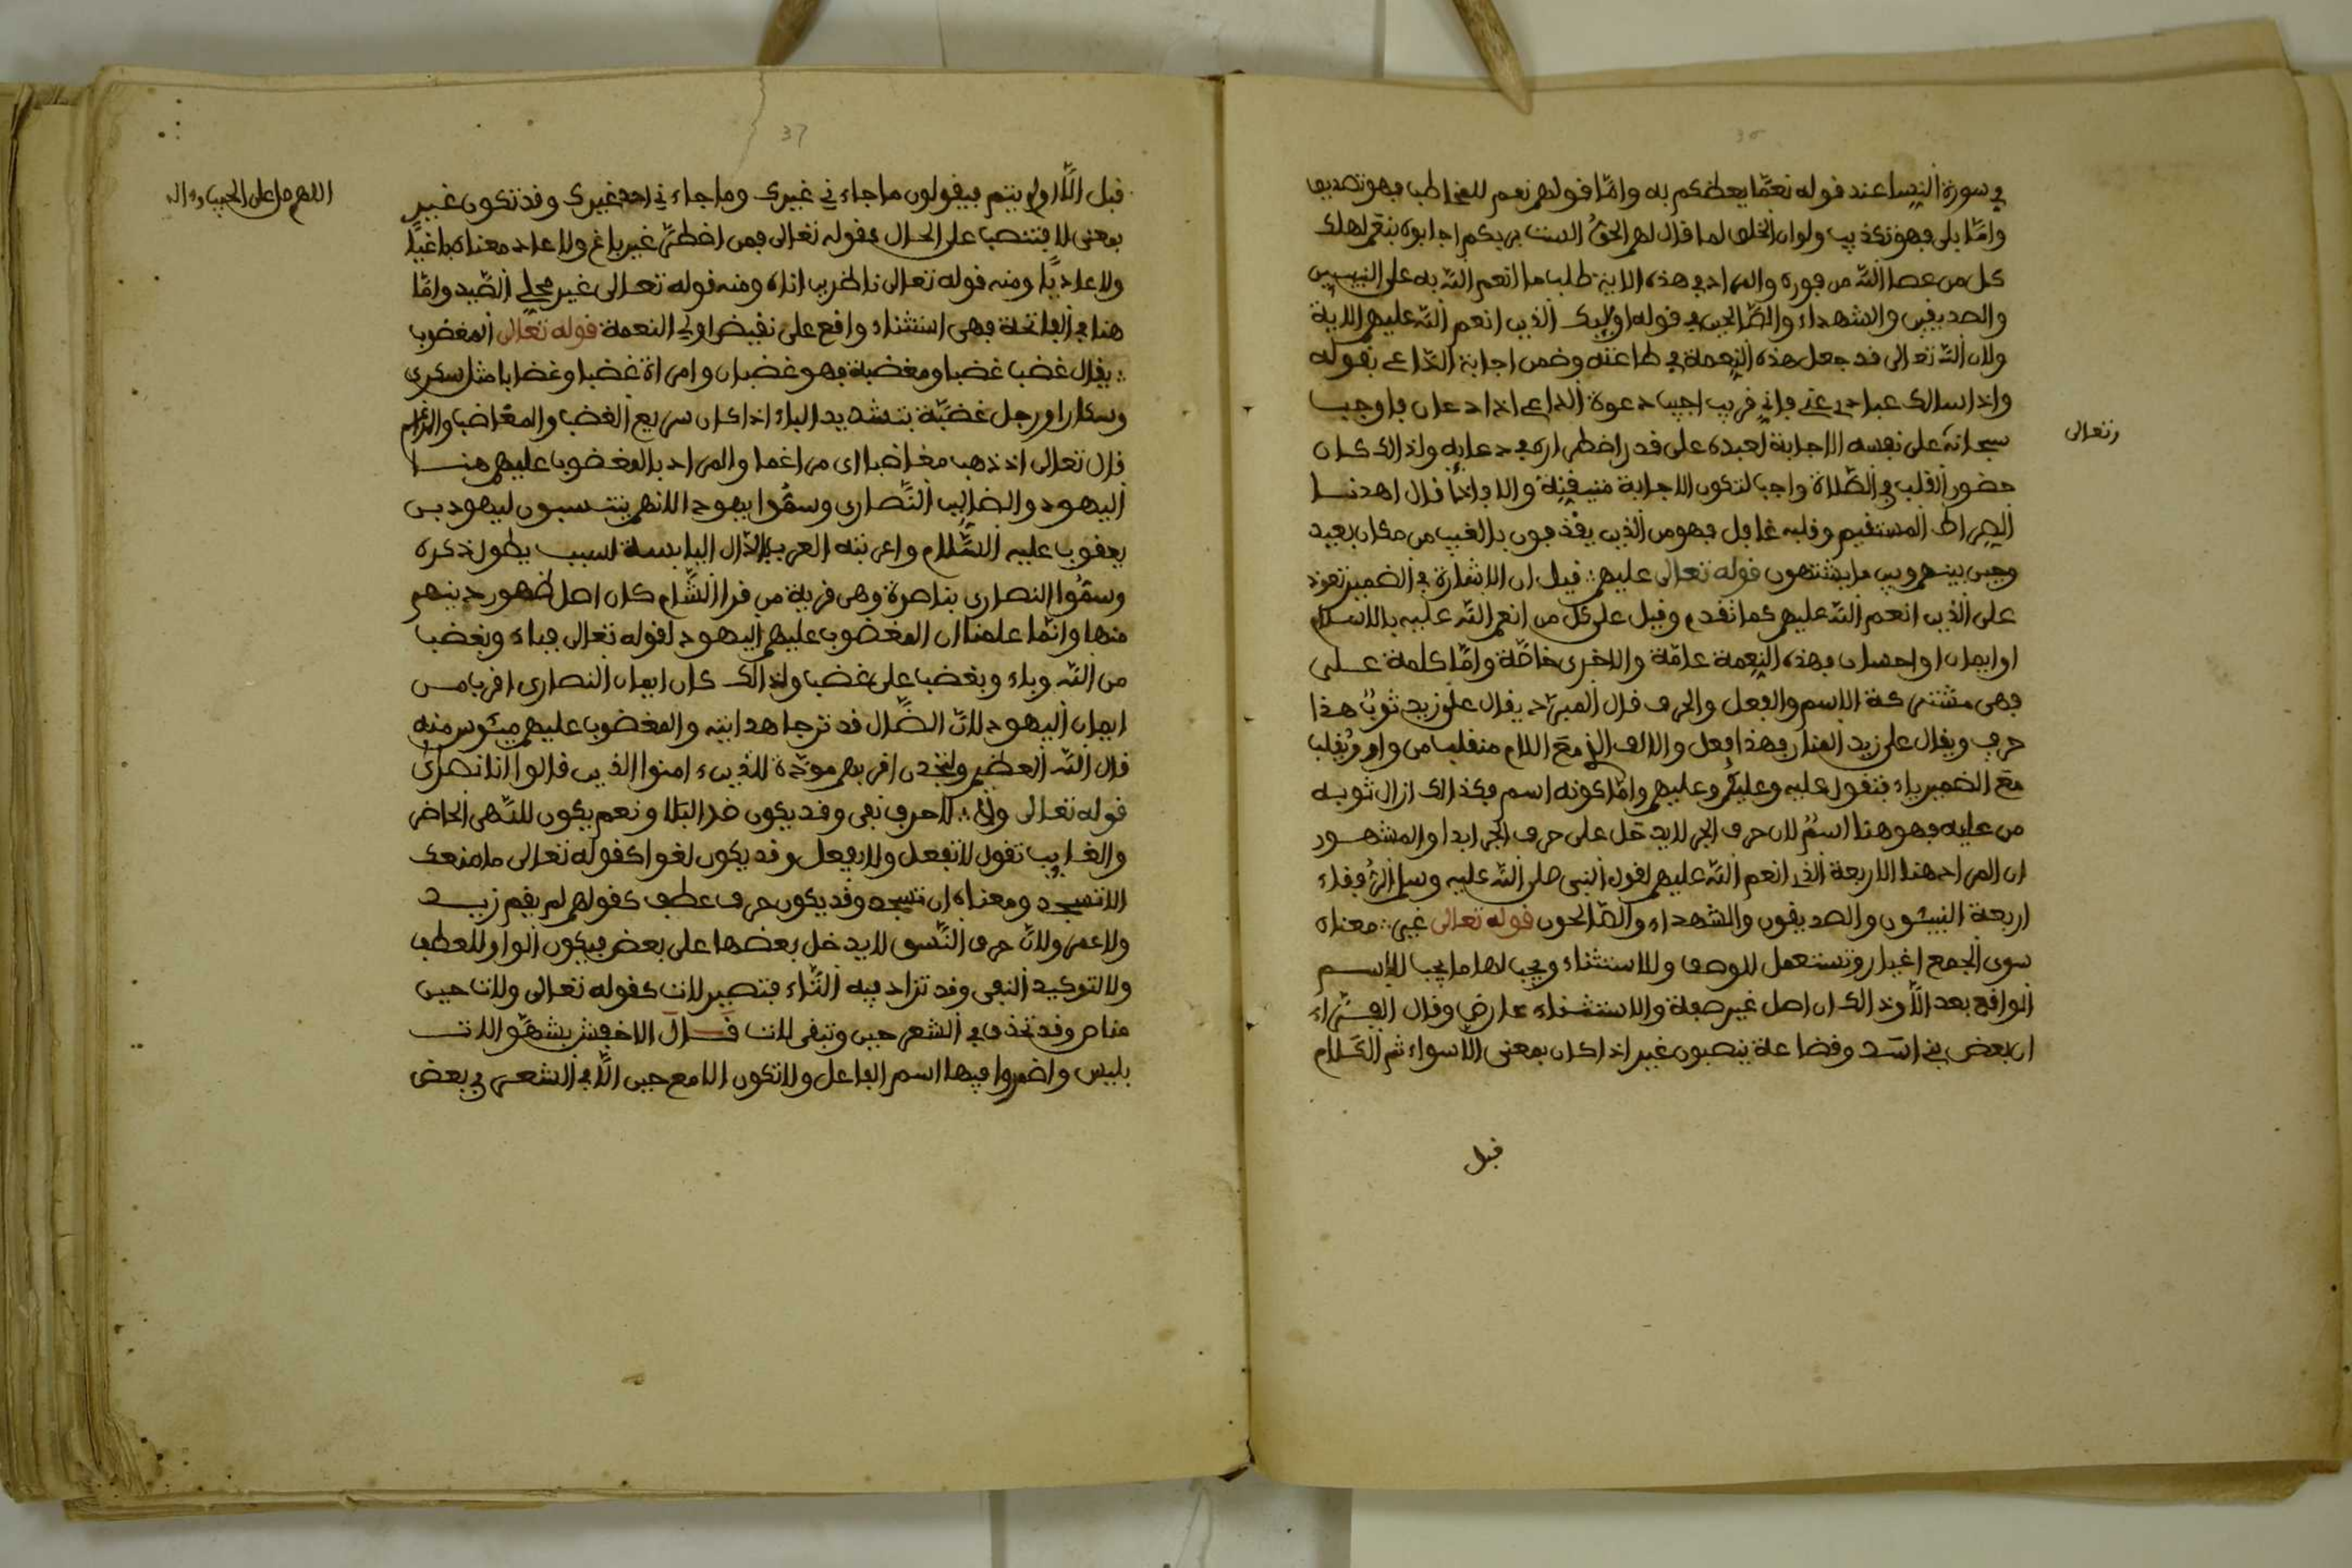 في سورة النسا عند قوله نعمّا يعظكم به وامّا قولهم نعم للمخاطب فهو تصديق
وامّا بلى فهو تكذيب ولو ان الخلق لما قال لهم الحقُّ الست بربكم اجابوه بنعم لهلك
كل من عصا اللّه من فوره والمراد في هذه الاية طلب ما انعم اللّه به على النبيين
والصديقين والشهداء والصّالحين في قوله اوليك الذين انعم اللّه عليهم الاية
ولان اللّه تعالى قد جعل هذه النعمة في طاعته وضمن اجابة الدّاعي بقوله
واذا سالك عبادي عني فاني قريب اجيب دعوة الداعي اذا دعان فاوجب
سبحانه على نفسه الاجابة لعبده على قدر اضطراره في دعايه ولذالك كان
وتعالى
حضور القلب في الصّلاة واجبا لتكون الاجابة متيقنة والا فاذا قال اهدنا
الصراط المستقيم وقلبه غافل فهو من الذين يقذفون بالغيب من مكان بعيد
وحيل بينهم وبين ما يشتهون قوله تعالى عليهم قيل ان الاشارة في الضمير تعود
على الذين انعم اللّه عليهم كما تقدم وقيل على كل من انعم اللّه عليه بالاسلام
او ايمان او احسان فهذه النعمة عامّة والاخرى خاصّة وامّا كلمة على
فهي مشتركة الاسم والفعل والحرف قال المبرّد يقال على زيد ثوبٌ هذا
حرف ويقال على زيد المنار فهذا فعل والالف الذي مع اللام منقلب من واو وتُقلب
مع الضمير ياء فتقول عليه وعليكم وعليهم وامّا كونه اسم فكذالك ازال ثوبه
من عليه فهو هنا اسمٌ لان حرف الجر لا يدخل على حرف الجر ابدا والمشهود
ان المراد هنا الاربعة الذين انعم اللّه عليهم لقول النبي صلى اللّه عليه وسلم الرُفقاء
اربعة النبيئون والصديقون والشهداء والصّالحون قوله تعالى غير معناه
سوى الجمع اغيار وتستعمل للوصف وللاستثناء ويجب لها ما يجب للاسم
الواقع بعد الّا وذالك ان اصل غير صفة والاستثناء عارض وقال الفرّاء
ان بعض بني اسد وقضاعة ينصبون غير اذا كان بمعنى الا سواء تم الكلام
قبل
قبل الّا او لم يتم فيقولون ما جاء ني غيرك وما جاء ني احد غيرك وقد تكون غير
اللهم صل على الحبيب واله
بمعنى لا فتنتصب على الحال كقوله تعالى فمن اضطرّ غير باغ ولا عاد معناه باغيًا
ولا عاديًا ومنه قوله تعالى ناظرين اناه ومنه قوله تعالى غير محلي الصّيد وامّا
هنا في الفاتحة فهي استثناء واقع على نقيض اولي النعمة قوله تعالى المغضوب
يقال غضب غضبا ومغضبة فهو غضبان وامراة غضبا وغضابا مثل سكرى
وسكارا ورجل غضبّة بتشديد الباء اذا كان سريع الغضب والمغاضب والمراغم
قال تعالى اذ ذهب مغاضبا اى مراغما والمراد بالمغضوب عليهم هنا
اليهود والضالين النّصارى وسمُّوا يهود لانهم ينتسبون ليهود بن
يعقوب عليه السّلام واعربته العرب بالدّال اليابسة لسبب يطول ذكره
وسمُّوا النصارى بناصرة وهي قرية من قرا الشّام كان اصل ظهور دينهم
منها وانّما علمنا ان المغضوب عليهم اليهود لقوله تعالى فباء وبغضب
من اللّه وباء وبغضب على غضب ولذالك كان ايمان النصارى اقرب من
ايمان اليهود لانّ الضّال قد ترجا هدايته والمغضوب عليهم ميئوس منه
قال اللّه العظيم ولتجدن اقربهم مودّة للذين ءامنوا الذين قالوا انا نصرى
قوله تعالى ولا لا حرف نفي وقد يكون ضد البلا ونعم يكون للنّهي الحاضر
والغايب تقول لا تفعل ولا يفعل وقد يكون لغوا كقوله تعالى ما منعك
الا تسجد ومعناه ان تسجد وقد يكون حرف عطف كقولهم لم يقم زيد
ولا عمر ولانّ حرف النّسق لا يدخل بعضها على بعض فيكون الواو للعطف
ولا لتوكيد النفي وقد تزاد فيه التّاء فتصير لات كقوله تعالى ولات حين
مناص وقد تحذف في الشعر حين وتبقى لات قال الاخفش شبهّوا لات
بليس واضمروا فيها اسم الفاعل ولا تكون الا مع حين الّا في الشعر في بعض